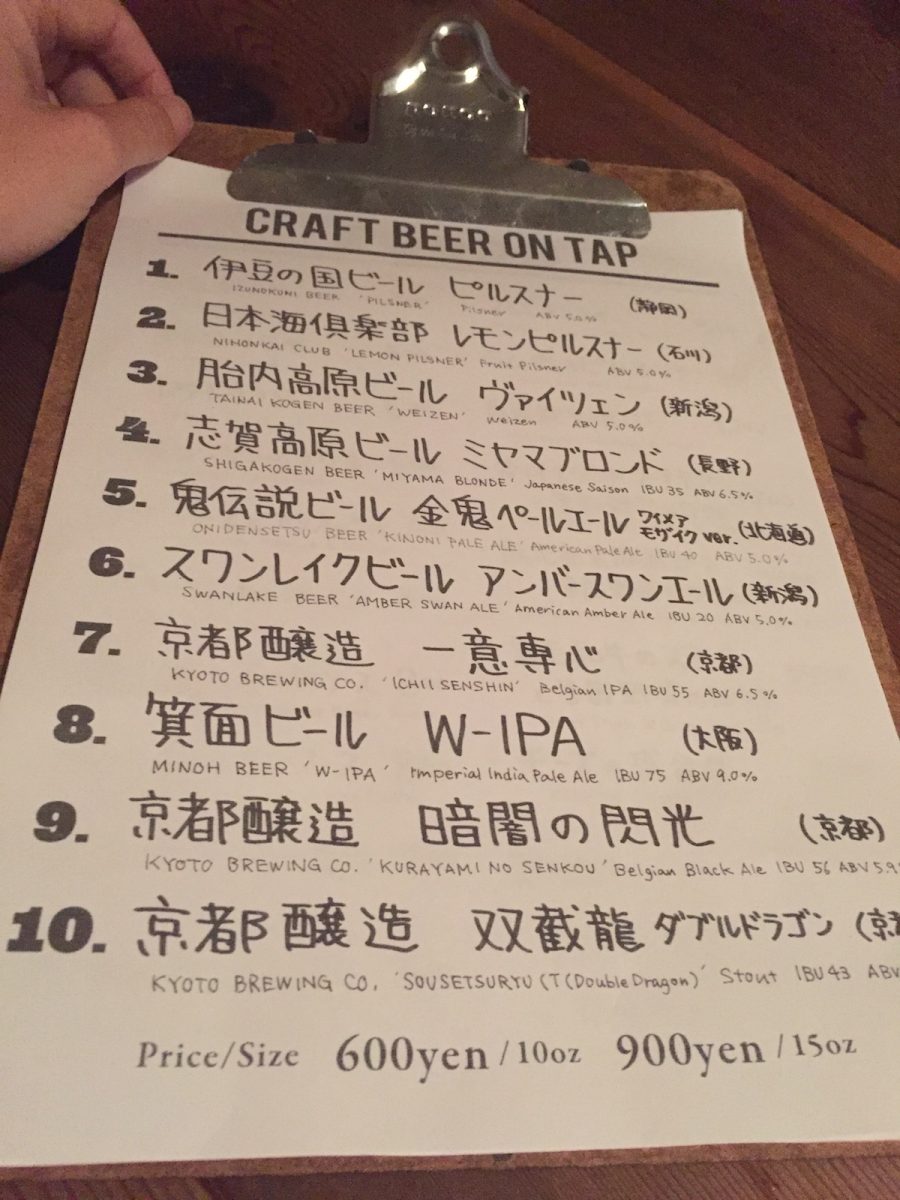 CRAFT BEER ON TAP
1. 伊豆の国ビール ピルスナー (静岡)
IZUNOKUNI BEER 'PILSNER' Pilsner ABV 5.0%
2. 日本海倶楽部 レモンピルスナー (石川)
NIHONKAI CLUB 'LEMON PILSNER' Fruit Pilsner ABV 5.0%
3. 胎内高原ビール ヴァイツェン (新潟)
TAINAI KOGEN BEER 'WEIZEN' Weizen ABV 5.0%
4. 志賀高原ビール ミヤマブロンド (長野)
SHIGAKOGEN BEER 'MIYAMA BLONDE' Japanese Saison IBU 35 ABV 6.5%
5. 鬼伝説ビール 金鬼ペールエール ワイメア モザイク ver. (北海道)
ONIDENSETSU BEER 'KINONI PALE ALE' American Pale Ale IBU 40 ABV 5.0%
6. スワンレイクビール アンバースワンエール (新潟)
SWANLAKE BEER 'AMBER SWAN ALE' American Amber Ale IBU 20 ABV 5.0%
7. 京都醸造 一意専心 (京都)
KYOTO BREWING CO. 'ICHII SENSHIN' Belgian IPA IBU 55 ABV 6.5%
8. 箕面ビール W-IPA (大阪)
MINOH BEER 'W-IPA' Imperial India Pale Ale IBU 75 ABV 9.0%
9. 京都醸造 暗闇の閃光 (京都)
KYOTO BREWING CO. 'KURAYAMI NO SENKOU' Belgian Black Ale IBU 56 ABV 5.9
10. 京都醸造 双截龍 ダブルドラゴン (京
KYOTO BREWING CO. 'SOUSETSURYU (T(Double Dragon)' Stout IBU 43 ABV
Price/Size 600yen / 10oz 900yen / 15oz